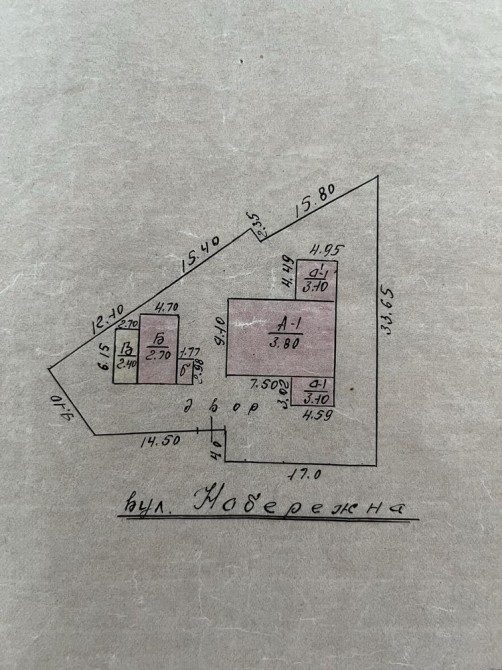 15.80
2.35
15.40
4.95
4.49
а'-1
3.10
12.10
4.70
2.70
9.10
А-1
3.80
33.65
6.15
В
2.40
Б
2.70
1.77
б
2.98
7.50
3.02
а-1
3.10
4.59
9.10
двор
14.50
40
17.0
вул. Набережна